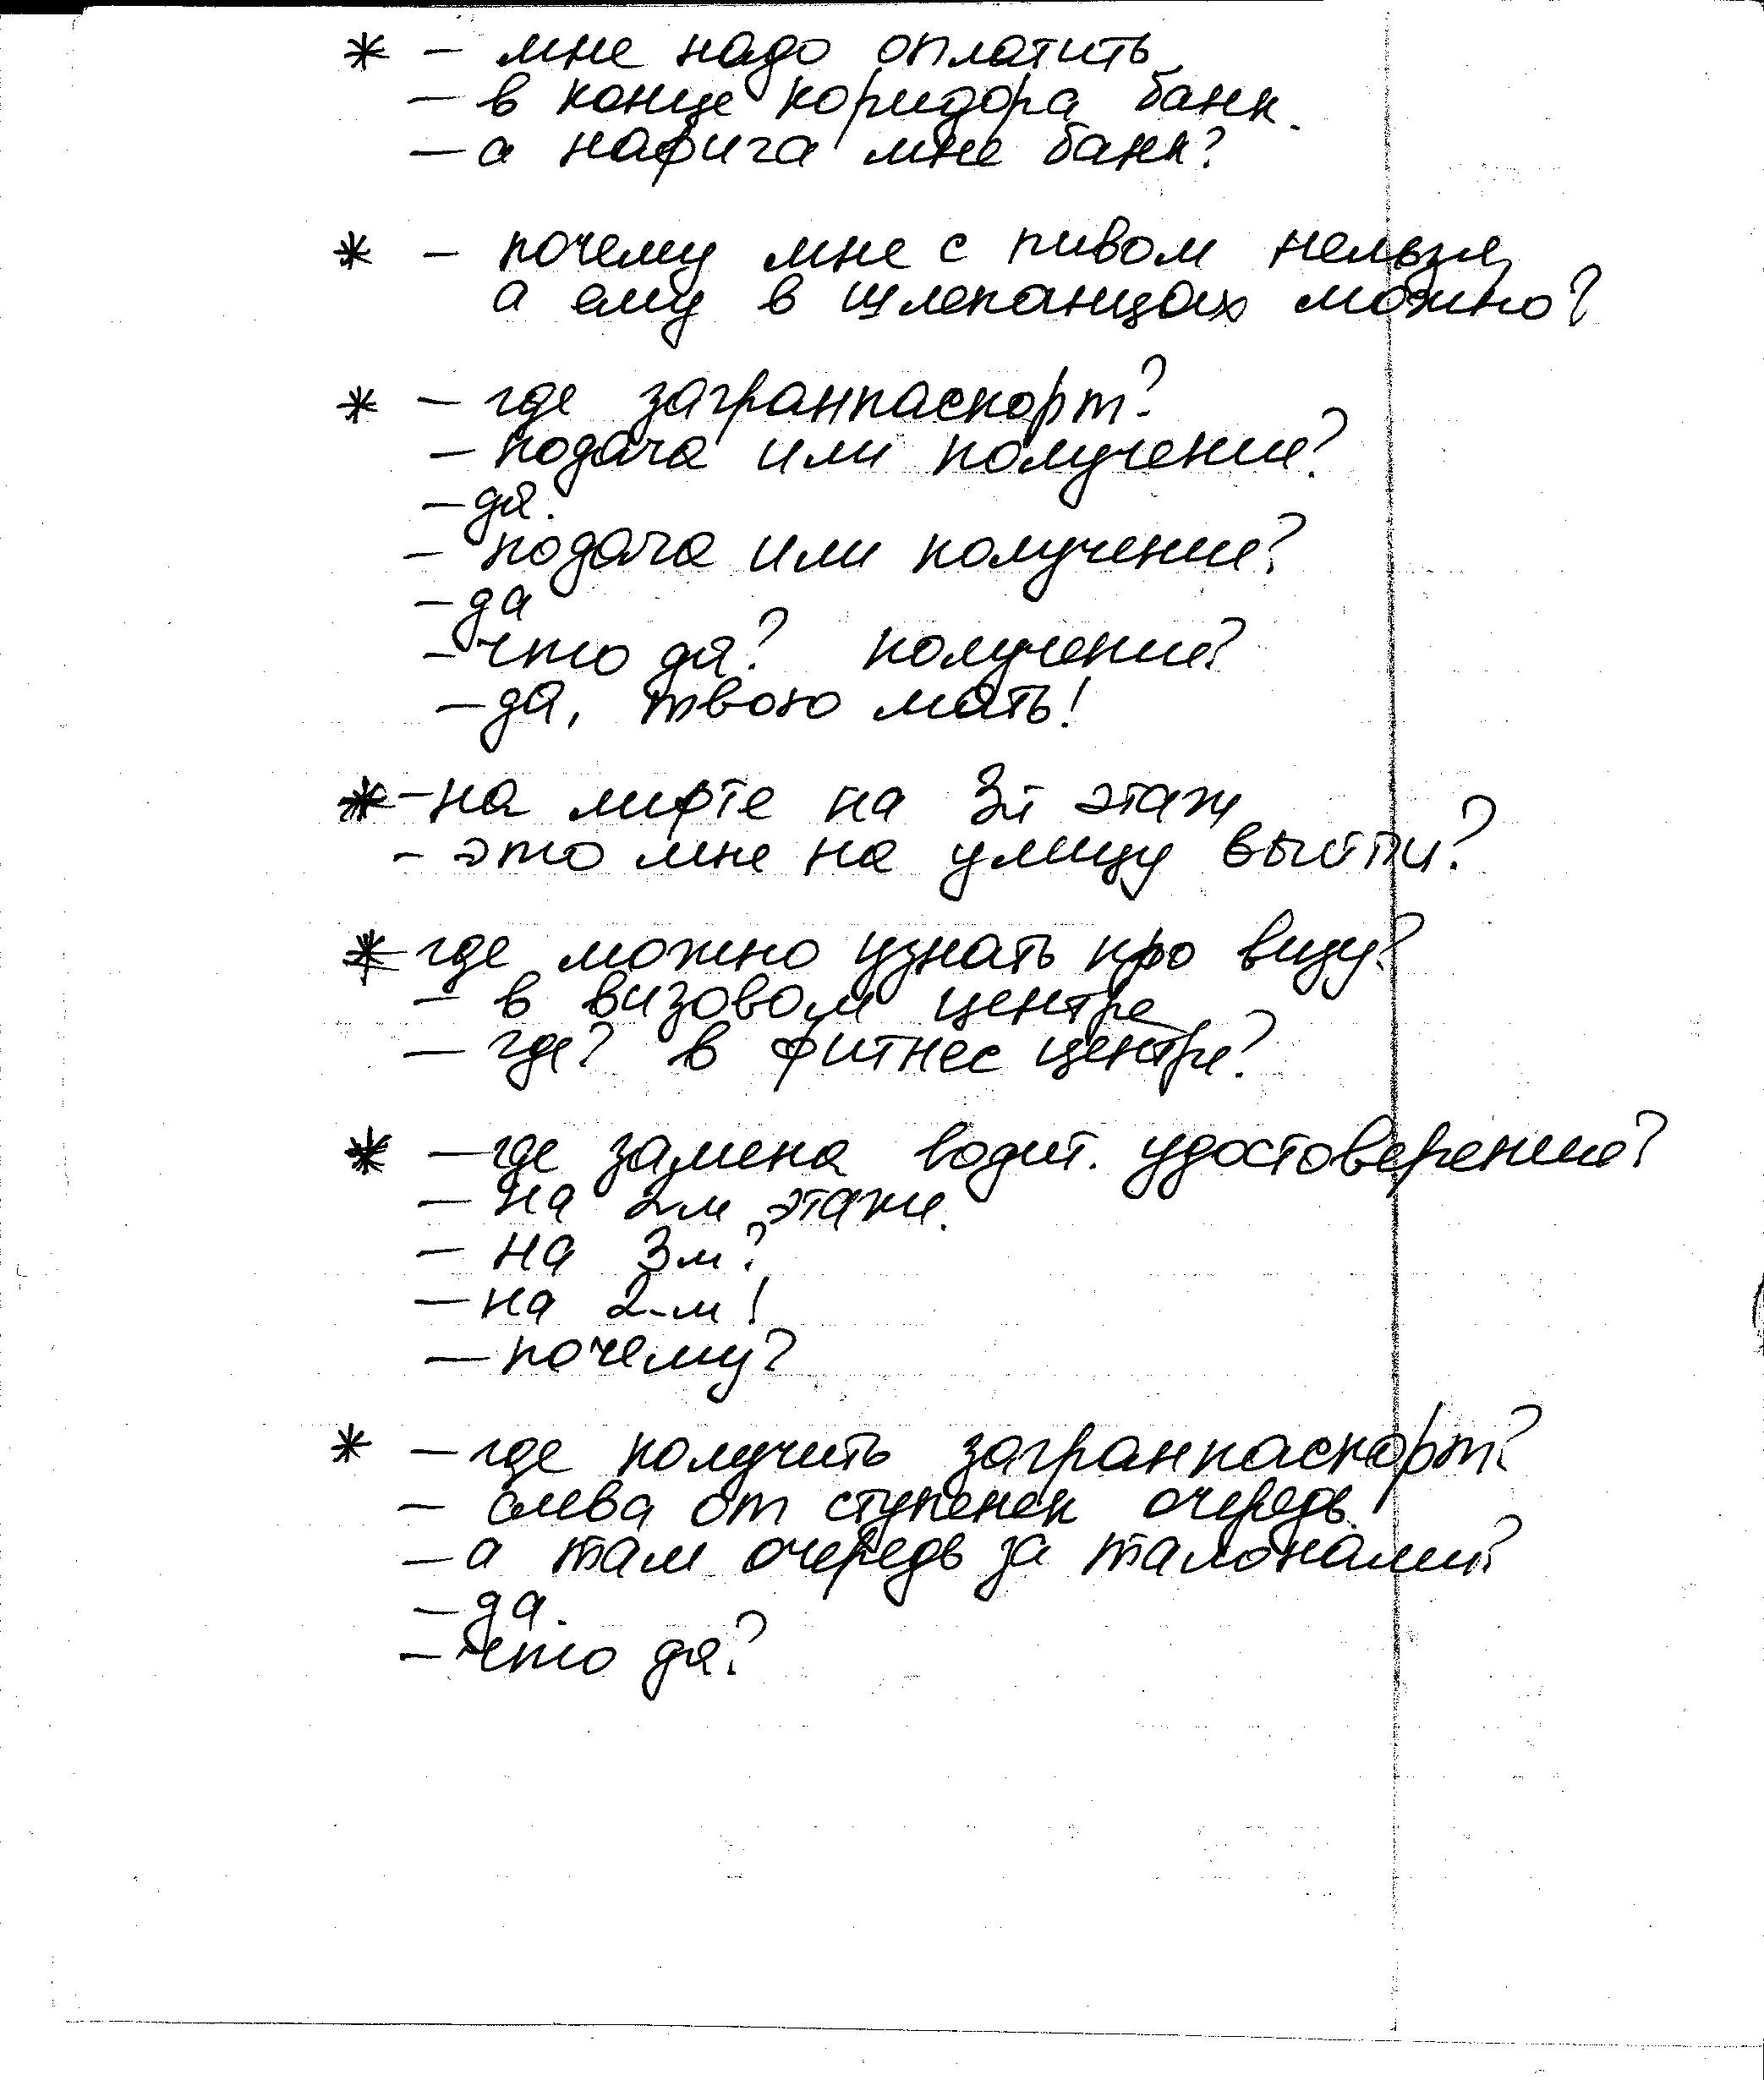 * - мне надо оплатить
- в конце коридора банк.
- а нафига мне банк?
* - почему мне с пивом нельзя,
а ему в шлепанцах можно?
* - где загранпаспорт?
- подача или получение?
- да.
- подача или получение?
- да
- что да? получение?
- да, твою мать!
* - на лифте на 3й этаж
- это мне на улицу выйти?
* - где можно узнать про визу?
- в визовом центре
- где? в фитнес центре?
* - где замена водит. удостоверение?
- на 2м этаже.
- на 3м?
- на 2-м!
- почему?
* - где получить загранпаспорт?
- слева от ступенек очередь.
- а там очередь за талонами?
- да.
- что да?